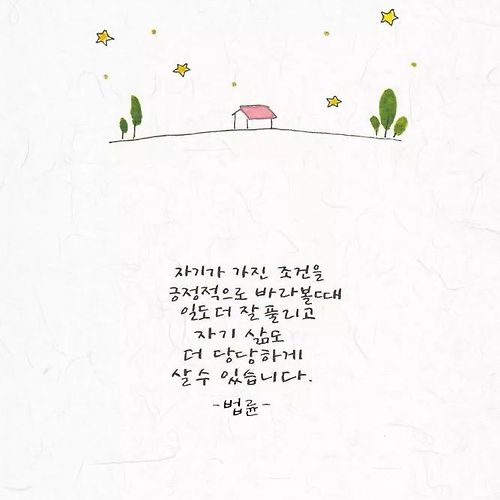 자기가 가진 조건을
긍정적으로 바라볼때
일도 더 잘 풀리고
자기 삶도
더 당당하게
살 수 있습니다.
-법륜-